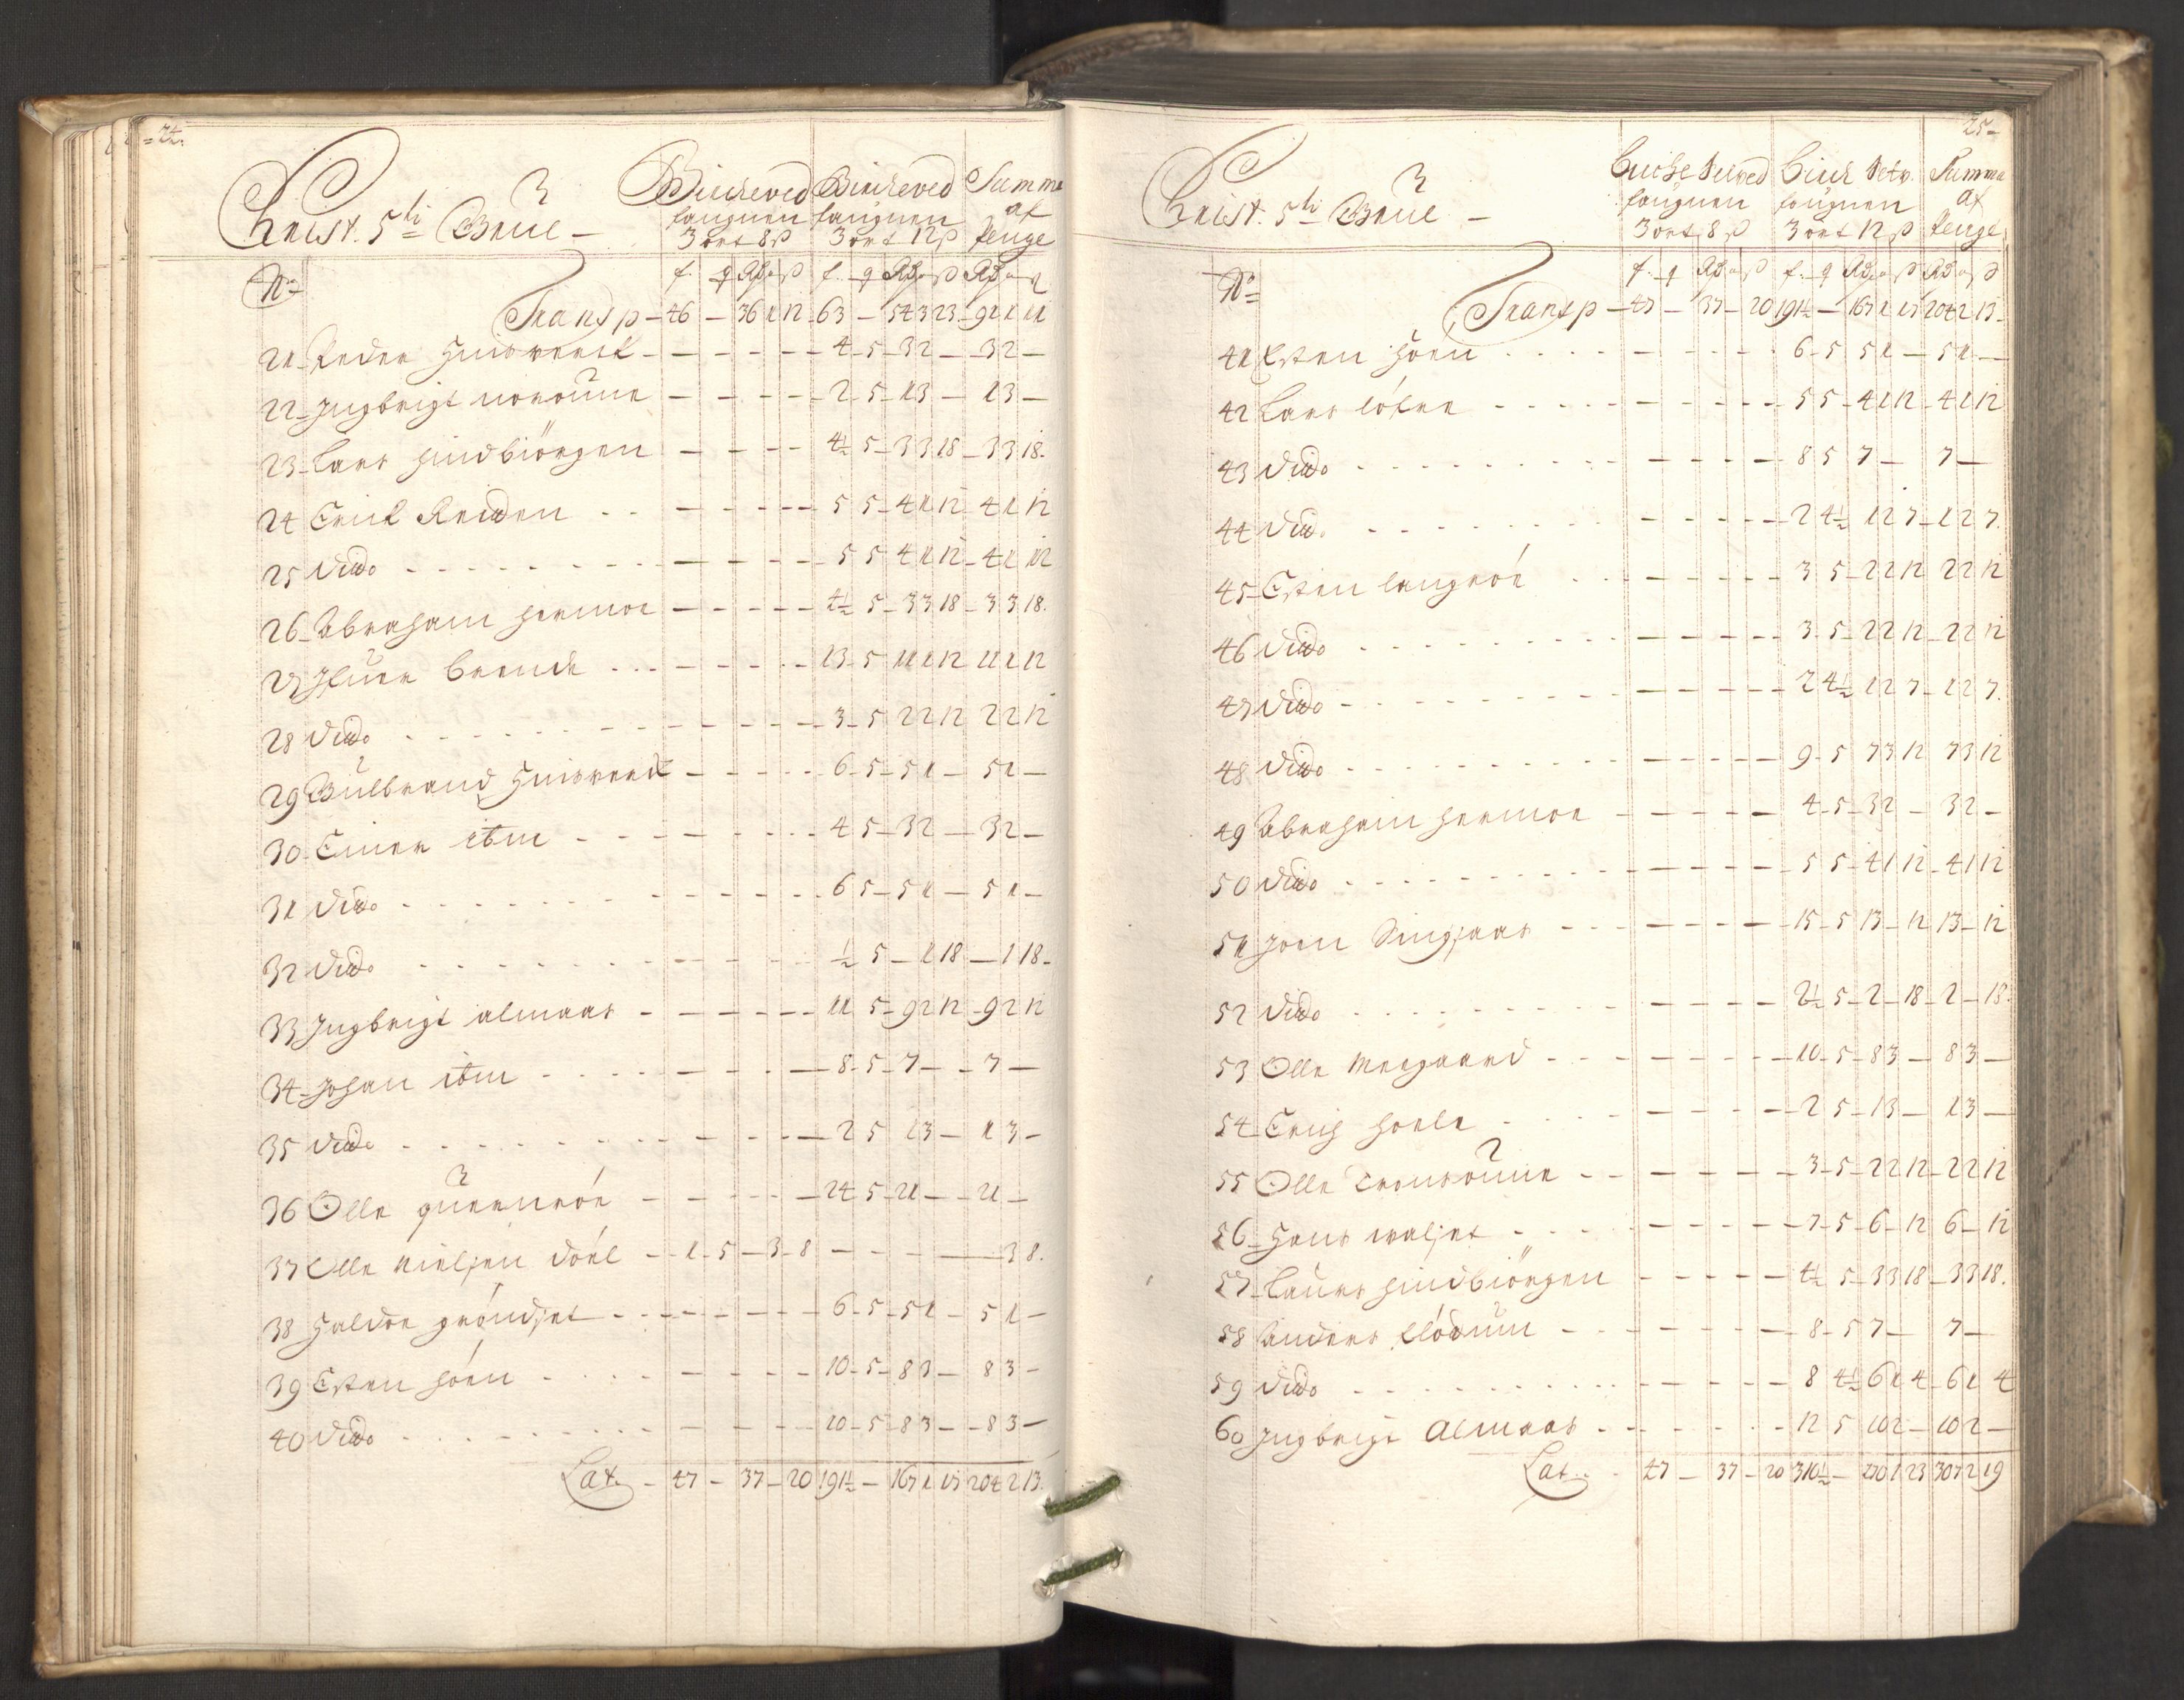 24.
Christ. 5ti Grue – Birkeved Birkeved Summa
faugnen faugnen af
3 ort 8 ß 3 ort 12 ß Penge
No f. q Rd o ß f. q Rd o ß Rd o ß
Transp – 46 – 36 1 12 63 – 54 3 23 – 91 1 11
21 Peder – – – – – 4 – 5 – 3 2 – – 3 2 –
22 Ingbrigt – – – – – 2 – 5 – 1 3 – 1 3 –
23 Lars Hindbiörgen – – – – 4½ 5 – 3 3 18 – 3 3 18.
24 Erick Reiden – – – – 5 5 – 4 1 12 4 1 12
25 Dido – – – – 5 5 4 1 12 – 4 1 12
26 Abraham Hermoe – – – – – 4½ 5 – 3 3 18 – 3 3 18.
27 Ifuer Brende – – – – 13 – 5 11 1 12 11 1 12
28 Dido – – – – 3 – 5 2 2 12 2 2 12
29 Gulbrand – – – – – 6 – 5 – 5 1 – 5 1 –
30 Einer ibm – – – – 4 5 – 3 2 – 3 2 –
31 Dido – – – – 6 5 – 5 1 – 5 1 –
32 Dido – – – – ½ 5 – 1 18 – 1 18 –
33 Ingbrigt almaas – – – – – 11 5 – 9 2 12 – 9 2 12
34 Johan ibm – – – – 8 – 5 – 7 – – 7 –
35 Dido – – – – 2 5 1 3 – 1 3 –
36 Olle quernröe – – – – 24 5 – 21 – – 21 –
37 Olle Nielsen döel – 1 – 5 – 3 – 8 – – – – 3 8.
38 Haldor gröndset – – – – 6 – 5 – 5 1 – 5 1 –
39 Esten höen – – – – 10 – 5 – 8 3 – 8 3 –
40 Dido – – – – 10 – 5 8 3 – – 8 3 –
Lat. – 47 – 37 – 20 191½ – 167 1 17 204 2 13.
25
Christ. 5ti Grue – Birkeved Summa
faugnen faugnen af
3 ort 8 ß 3 ort 12 ß Penge
No f. q Rd o ß f. q Rd o ß Rd o ß
Transp – 47 – 37 – 20 191½ – 167 1 17 204 2 13 –
41 Esten höen – – – – 6 – 5 5 1 – 5 1 –
42 Lars – – – – 5 5 – 4 1 12 – 4 1 12
43 Dido – – – – 8 5 7 – 7 –
44 Dido – – – – 2 4½ 1 2 7 – 1 2 7.
45 Esten langröe – – – – 3 5 – 2 2 12 2 2 12
46 Dido – – – – 3 – 5 – 2 2 12 – 2 2 12
47 Dido – – – – 2 4½ 1 2 7 – 1 2 7.
48 Dido – – – – 9 – 5 7 3 12 7 3 12
49 Abraham Hermoe – – – – 4 – 5 – 3 2 – 3 2 –
50 Dido – – – – 5 5 – 4 1 12 – 4 1 12
51 Joen Singsaas – – – – 15 – 5 13 – 12 13 – 12
52 Dido – – – – 2½ 5 – 2 – 18 – 2 – 18.
53 Olle Morgaard – – – – 10 – 5 – 8 3 – 8 3 –
54 Erich – – – – 2 5 – 1 3 – 1 3 –
55 Olle – – – – 3 – 5 – 2 2 12 – 2 2 12
56 Hans walset – – – – 7 – 5 – 6 – 12 6 – 12
57 Laurs Hindbiörgen – – – – 4½ 5 – 3 3 18 – 3 3 18.
58 Anders flödum – – – – 8 – 5 7 – 7 –
59 Dido – – – – 8 4½ 6 1 4 – 6 1 4
60 Ingbrigt Almaas – – – – 12 5 10 2 – 10 2 –
Lat. 47 – 37 – 20 310½ – 270 1 23 307 2 19